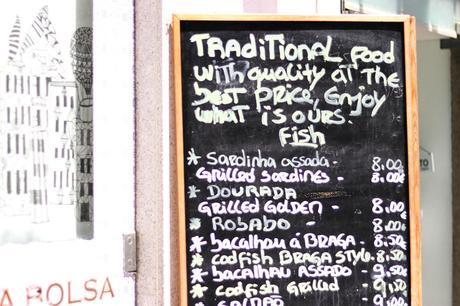 TRADITIONAL FOOD
WITH QUALITY AT THE
BEST PRICE, ENJOY
WHAT IS OURS.
FISH
* SARDINHA ASSADA - 8.00
GRILLED SARDINES - 8.00€
* DOURADA
GRILLED GOLDEN - 8.00
* ROBABO - 8.00
* BACALHAU Á BRAGA - 8.50
* CODFISH BRAGA STYLE. 8.50
* BACALHAU ASSADO - 9.50
* CODFISH GRILLED - 9.50
A BOLSA